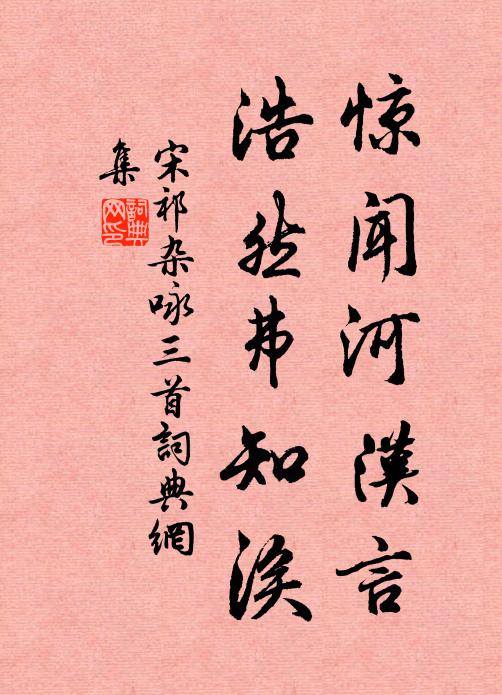 惊闻河漢言
浩然弗知涘
宋祁杂咏三首詞典網
集
詞典
网印